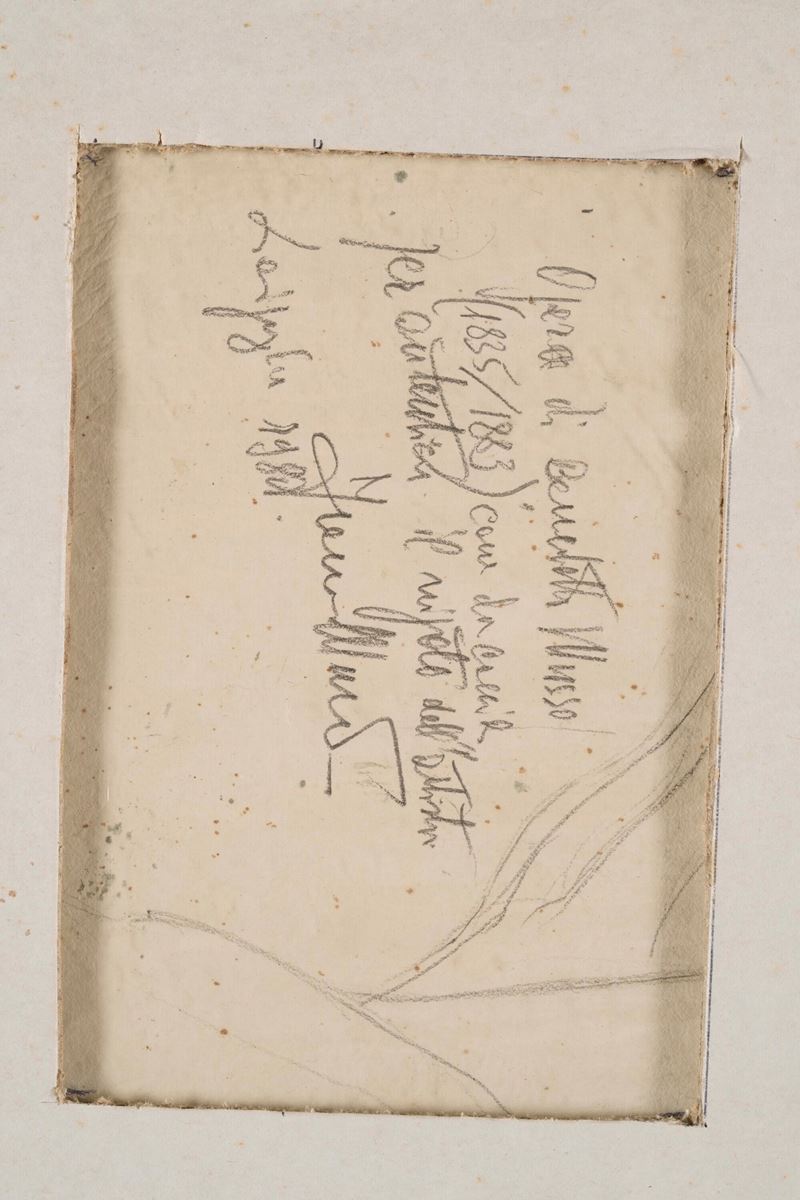 Opera di Benedetto Musso
(1835/1883) come da
per autentica il nipote dell'artista
Laigueglia 1980.